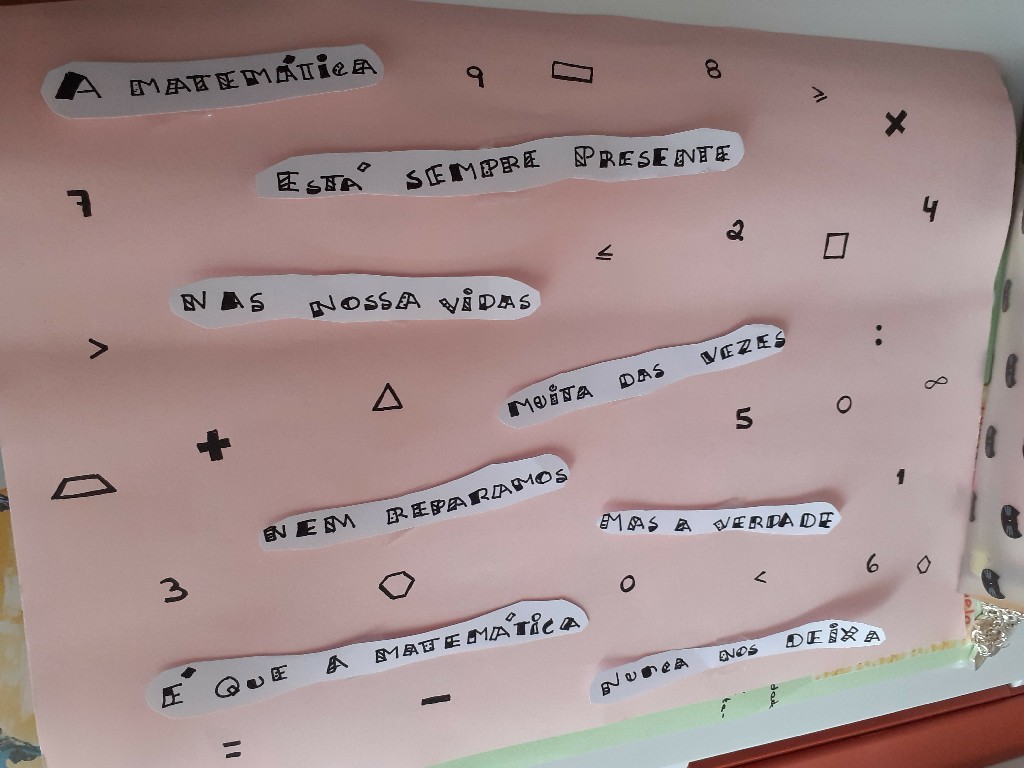 A MATEMÁTicA
9 8 ≥ ×
ESTÁ SEMPRE PRESENTE
7 4
≤ 2
NAS NOSSA ViDAS
> :
MUiTA DAS VEZES
∞
+ 5
NEM REPARAMOS
1
MAS A VERDADE
3 0 < 6
É QUE A MATEMÁTicA
NUNCA NOS DEiXA
-
=